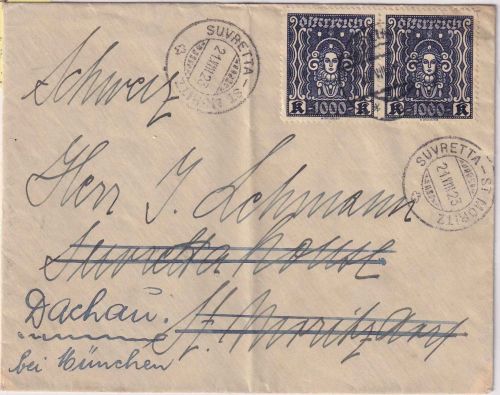 SUVRETTA - ST. MORITZ
21.VIII.23
österreich
österreich
K 1000 K
K 1000 K
SUVRETTA - ST. MORITZ
21.VIII.23
Schweiz
Herr J. Lehmann
Suvretta house
Dachau.
St. Moritz Dorf
bei München